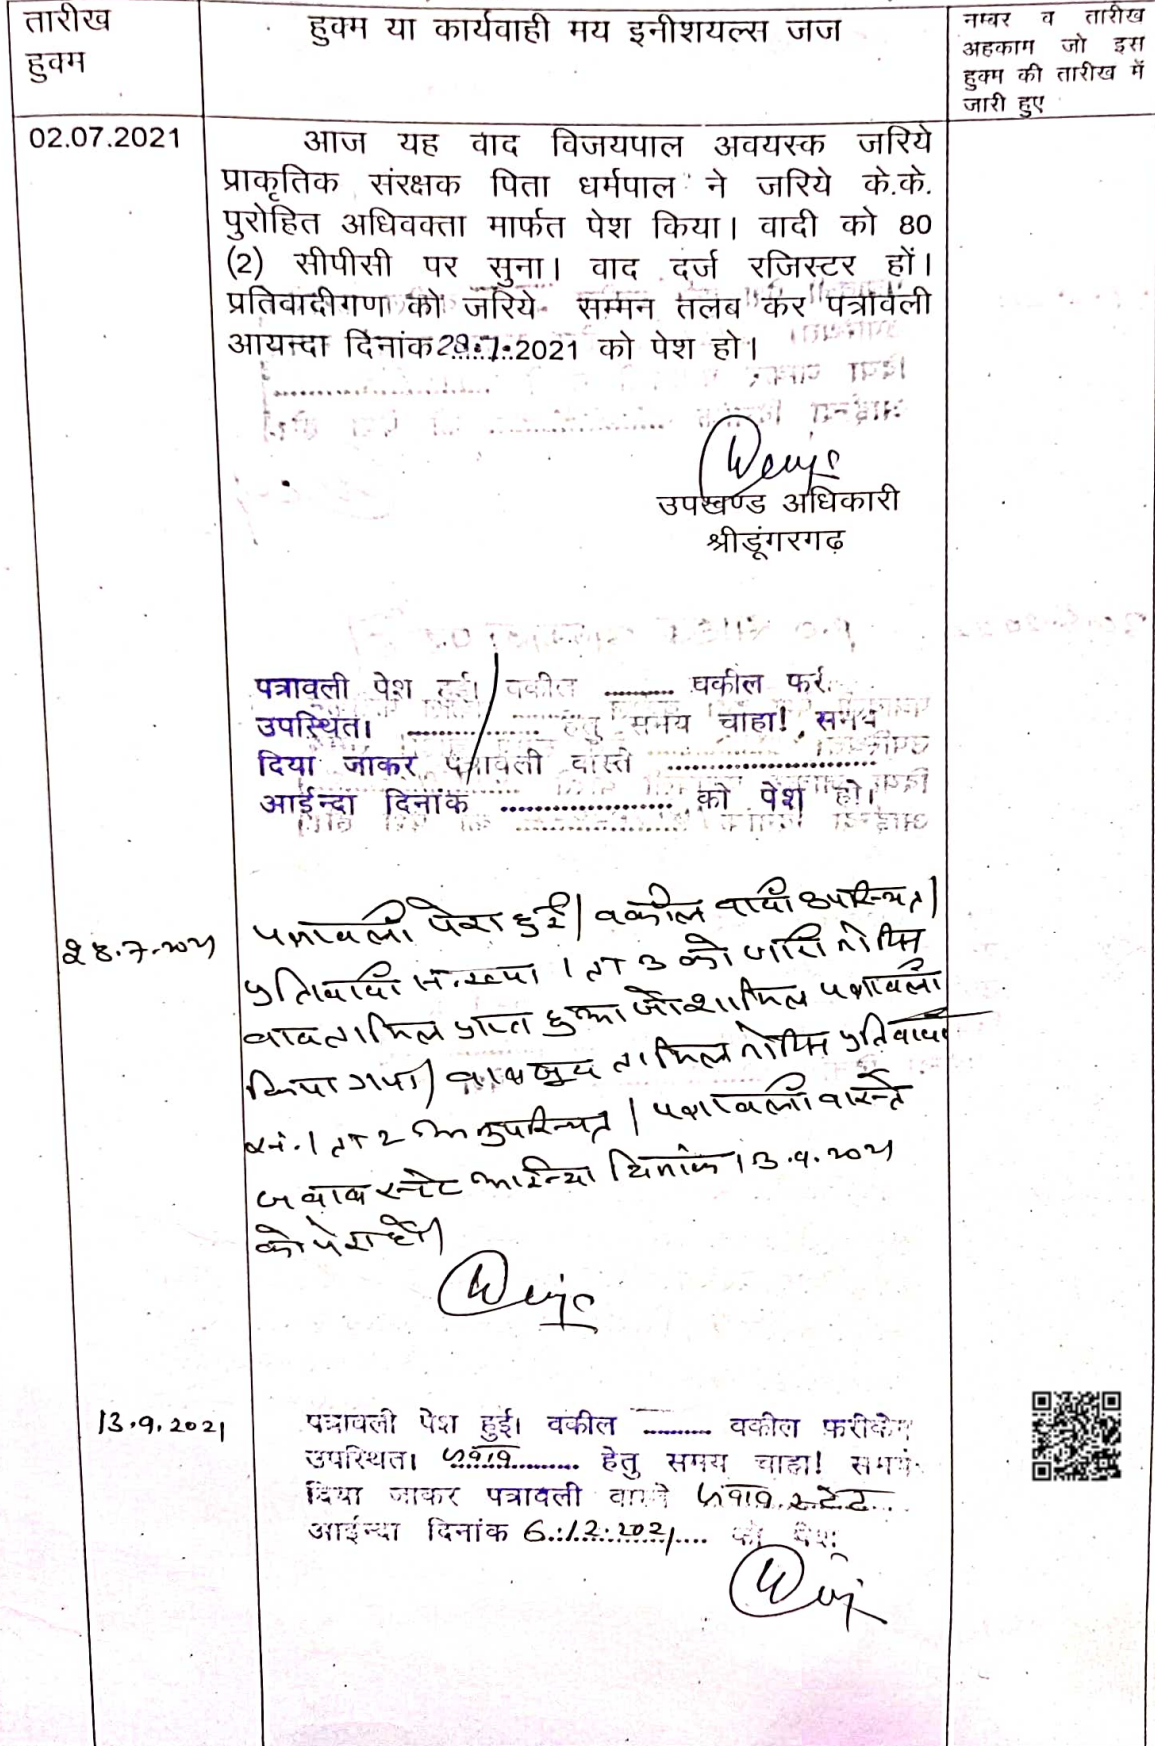 तारीख
हुक्म
हुक्म या कार्यवाही मय इनीशयल्स जज
नम्बर व तारीख
अहकाम जो इस
हुक्म की तारीख में
जारी हुए
02.07.2021
आज यह वाद विजयपाल अवयस्क जरिये
प्राकृतिक संरक्षक पिता धर्मपाल ने जरिये के.के.
पुरोहित अधिवक्ता मार्फत पेश किया। वादी को 80
(2) सीपीसी पर सुना। वाद दर्ज रजिस्टर हों।
प्रतिवादीगण को जरिये सम्मन तलब कर पत्रावली
आयन्दा दिनांक 28.7.2021 को पेश हो।
उपखण्ड अधिकारी
श्रीडूंगरगढ़
पत्रावली पेश हुई। वकील ......... वकील फरी
उपस्थित। ................. हेतु समय चाहा! समय
दिया जाकर पत्रावली वास्ते ..........................
आईन्दा दिनांक ...................... को पेश हो।
28.7.2021
पत्रावली पेश हुई। वकील वादी उपस्थित।
प्रतिवादी संख्या 1 ता 3 को जारी नोटिस
बाद तामिल प्राप्त हुआ जो शामिल पत्रावली
किया गया। बावजूद तामिल नोटिस प्रतिवादी
सं. 1 ता 2 अनुपस्थित। पत्रावली वास्ते
जवाब स्टेट आईन्दा दिनांक 13.9.2021
को पेश हो।
13.9.2021
पत्रावली पेश हुई। वकील ......... वकील फरीकेन
उपस्थित। जवाब......... हेतु समय चाहा! समय
दिया जाकर पत्रावली वास्ते जवाब स्टेट...
आईन्दा दिनांक 6.12.2021.... को पेश